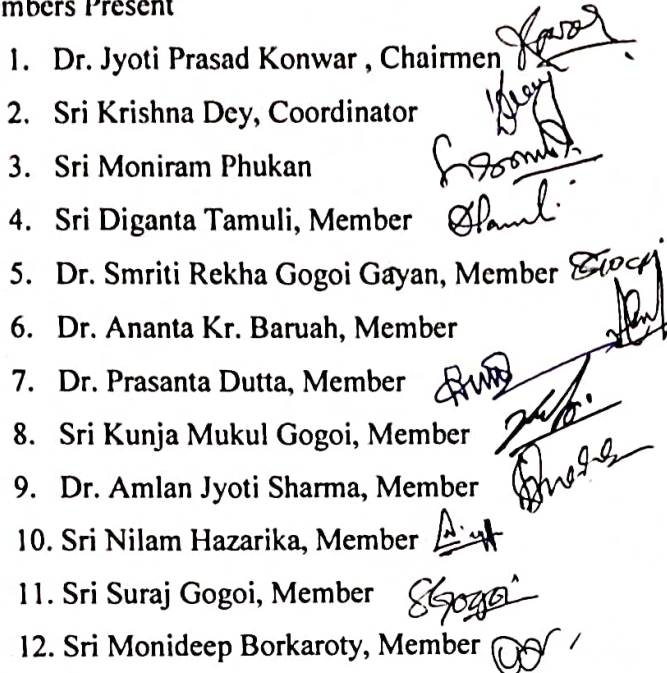 mbers Present
1. Dr. Jyoti Prasad Konwar , Chairmen
2. Sri Krishna Dey, Coordinator
3. Sri Moniram Phukan
4. Sri Diganta Tamuli, Member
5. Dr. Smriti Rekha Gogoi Gayan, Member
6. Dr. Ananta Kr. Baruah, Member
7. Dr. Prasanta Dutta, Member
8. Sri Kunja Mukul Gogoi, Member
9. Dr. Amlan Jyoti Sharma, Member
10. Sri Nilam Hazarika, Member
11. Sri Suraj Gogoi, Member SGogoi
12. Sri Monideep Borkaroty, Member